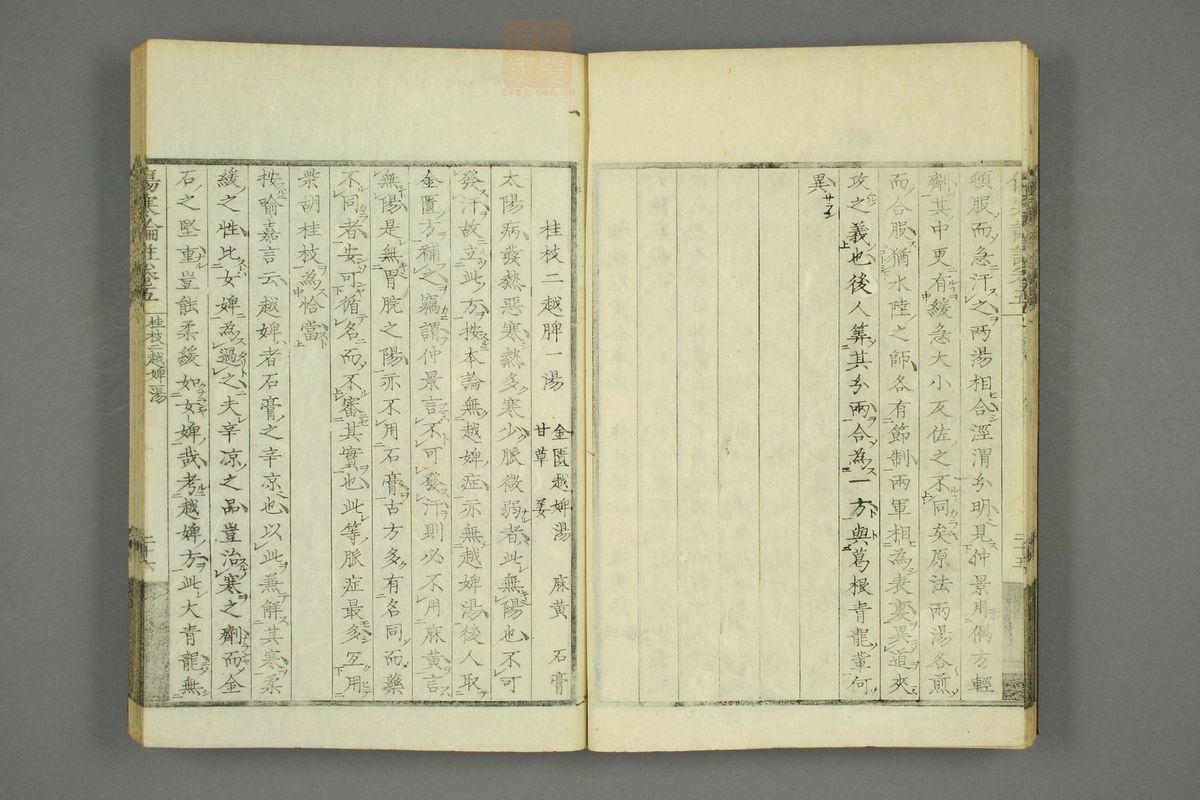 頓服而急汗之兩湯相合涇渭分明見仲景用偶方輕
劑其中更有緩急大小反佐之不同矣原法兩湯各煎
而合服猶水陸之師各有節制兩軍相為表裏異道夾
攻之義也後人筭其分兩合為一方與葛根青龍輩何
異
桂枝二越脾一湯
金匱越婢湯 麻黃 石膏
甘草 姜
太陽病發熱惡寒熱多寒少脈微弱者此無陽也不可
發汗故立此方按本論無越婢症亦無越婢湯後人取
金匱方補之竊謂仲景言不可發汗則必不用麻黃言
無陽是無胃脘之陽亦不用石膏古方多有名同而藥
不同者安可循名而不審其實也此等脈症最多互用
柴胡桂枝為恰當
按喻嘉言云越婢者石膏之辛凉也以此兼解其寒柔
緩之性比女婢為過之夫辛凉之品豈治寒之劑而金
石之堅重豈能柔緩如女婢哉考越婢方此大青龍無
傷寒論註卷五
桂枝二越婢湯
二十六